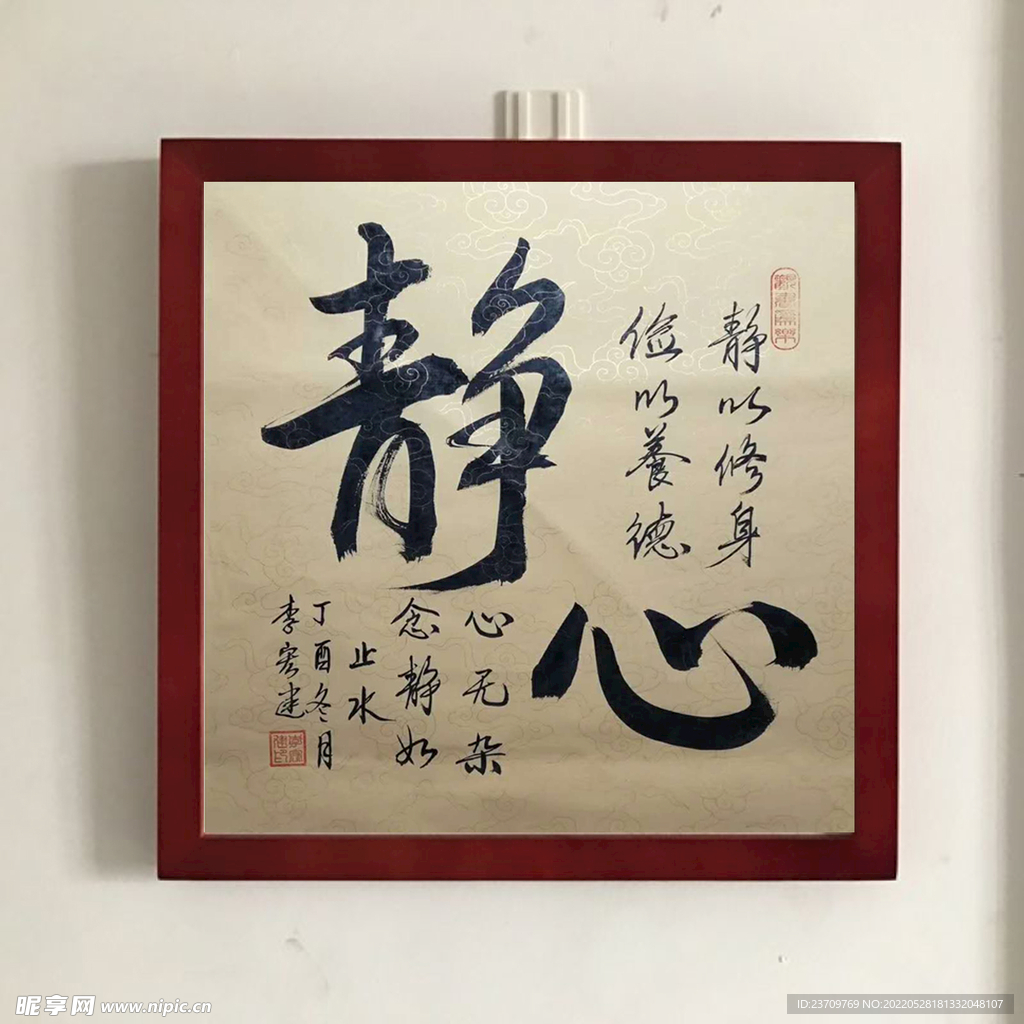 静心
静以修身
俭以養德
心无杂
念静如
止水
丁酉冬月
李宏建
昵享网 www.nipic.cn
ID:23709769 NO:20220528181332048107